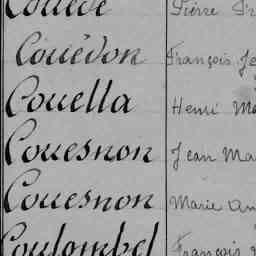 Couëdé Pierre
Couëdon François
Couella Henri
Couesnon Jean
Couesnon Marie
Coulombel François